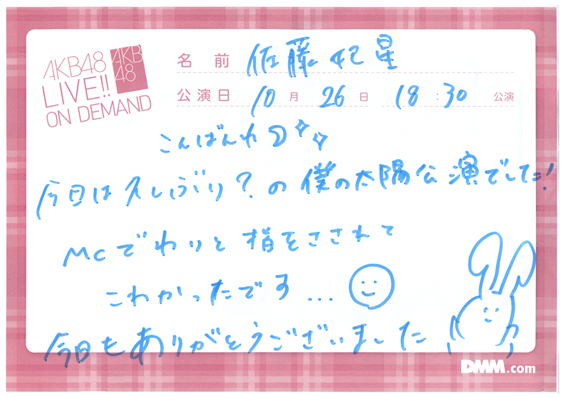 AKB48
LIVE!!
ON DEMAND
AKB
48
名前 佐藤妃星
公演日 10月26日 18:30 公演
こんばんわ
今日は久しぶり?の僕の太陽公演でした!
MCでわりと指をさされて
こわかったです...
今日もありがとうございました
DMM.com